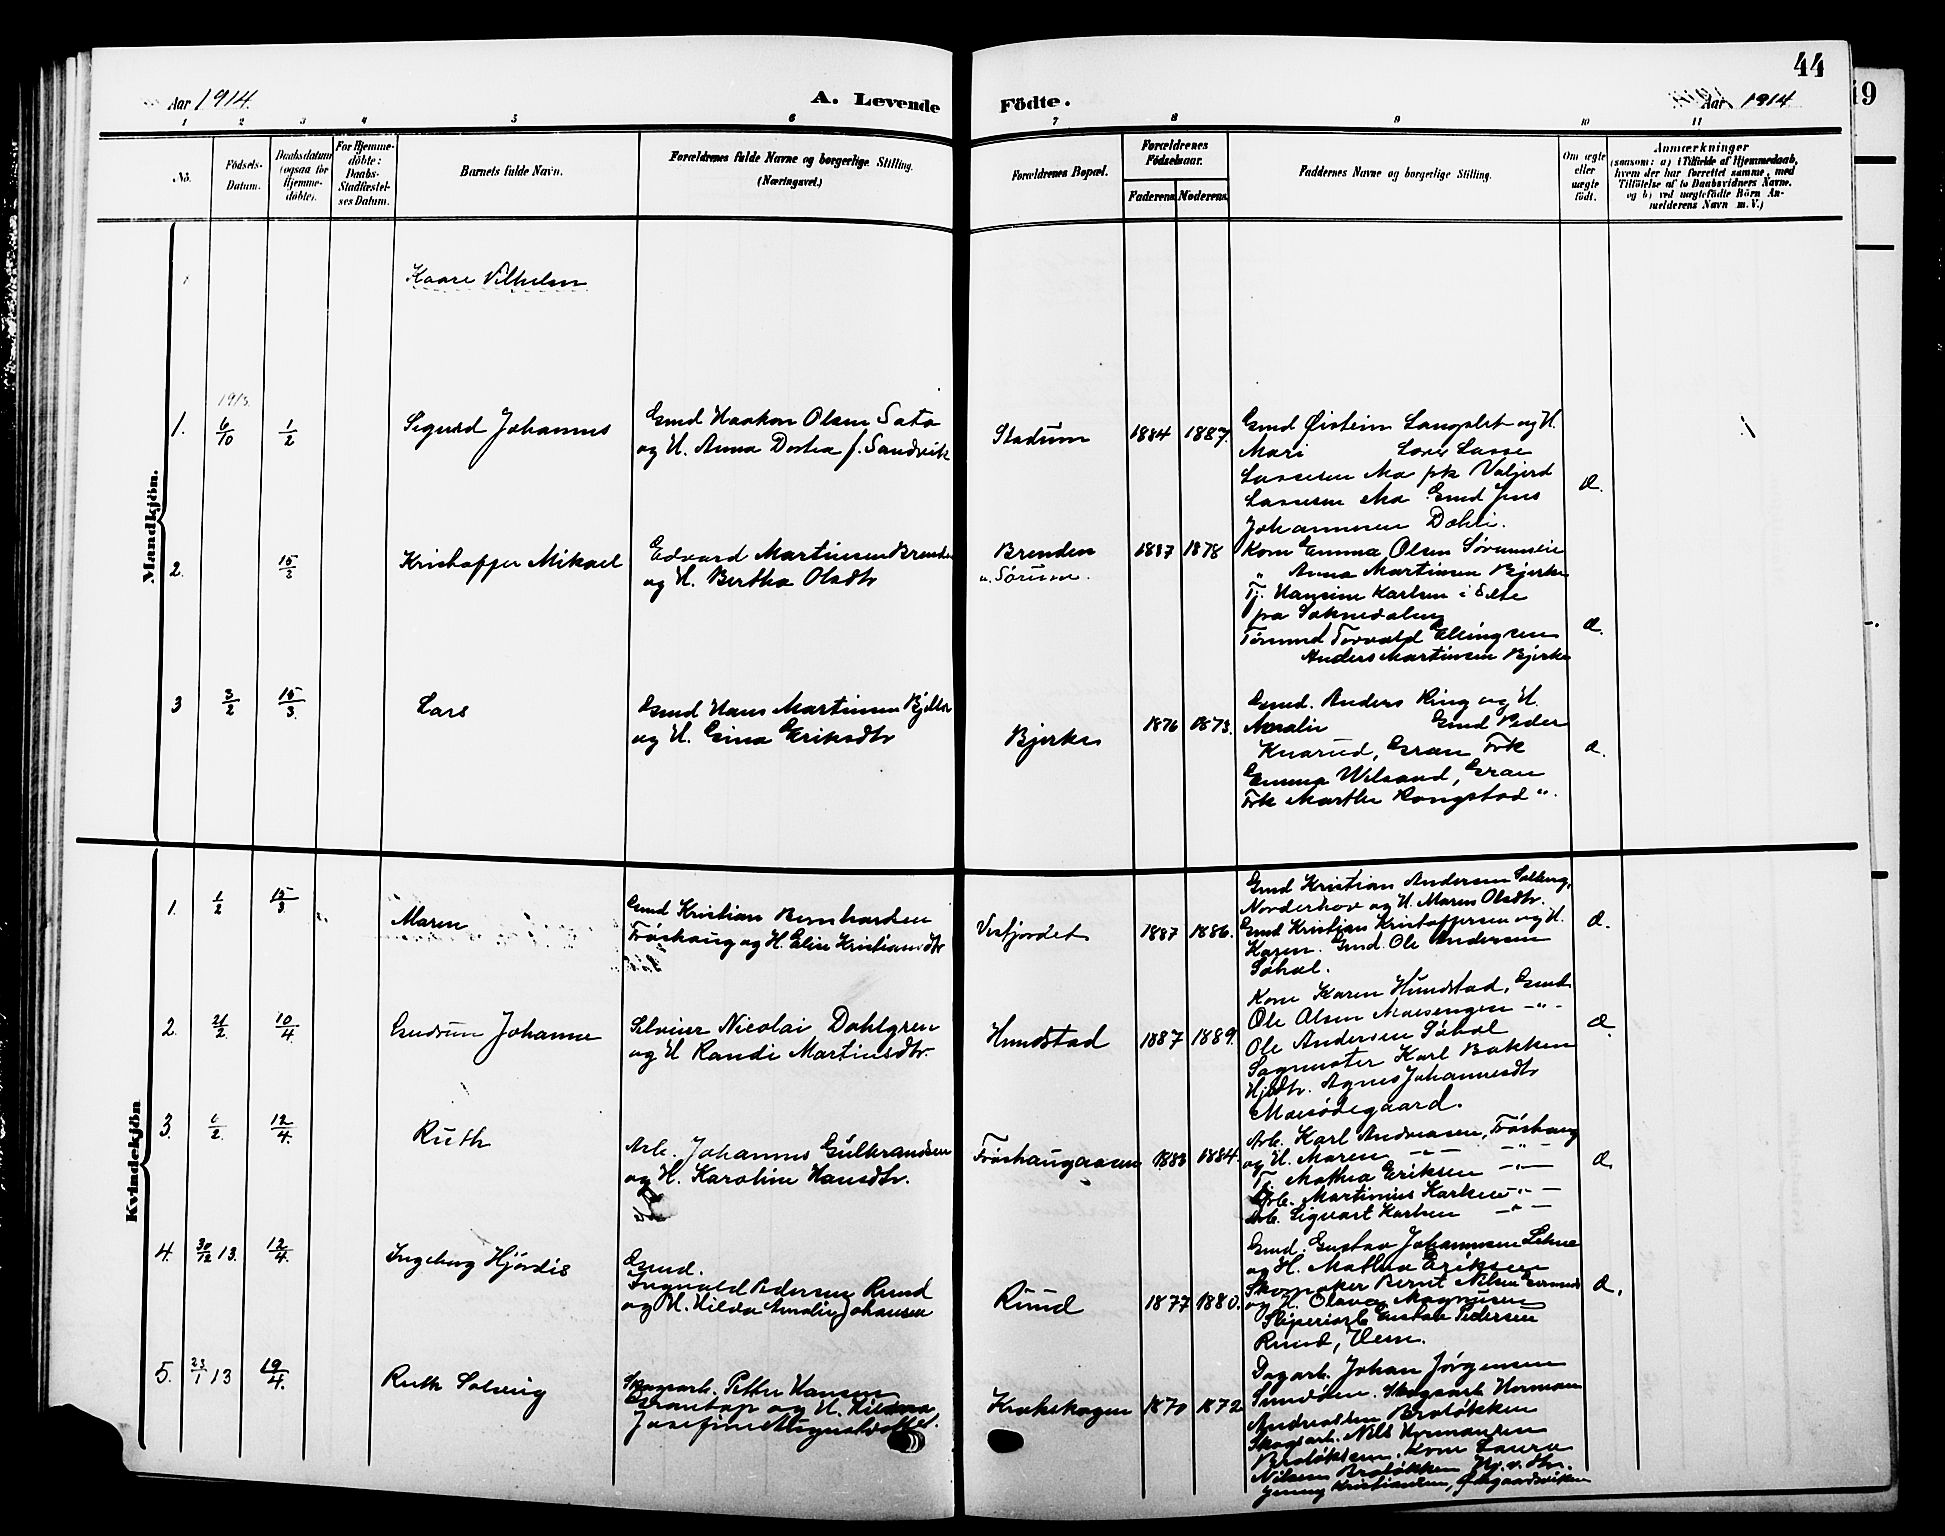 44
Aar 1914.
A. Levende
Födte.
Aar 1914
19
1 2 3 4 5 6 7 8 9 10 11
No.
Födsels-
Datum.
Daabsdatum
(ogsaa for
Hjemme-
döbte).
For Hjemme-
döbte:
Daabs-
Stadfæstel-
ses Datum.
Barnets fulde Navn.
Forældrenes fulde Navne og borgerlige Stilling.
(Næringsvei.)
Forældrenes Bopæl.
Forældrenes
Födselsaar.
Faderens. Moderens.
Faddernes Navne og borgerlige Stilling.
Om ægte
eller
uægte
födt.
Anmærkninger
(saasom: a) i Tilfælde af Hjemmedaab,
hvem der har forrettet samme, med
Tilföielse af to Daabsvidners Navne.
og b) ved uægtefödte Börn An-
melderens Navn m. V.)
Mandkjön.
Kaare Vilhelm
1913.
1. 6/10 1/2 Sigurd Johannes
Gmd Haakon Olsen Sata
og H. Anna Dortea f. Sandvik
Stadum 1884 1887.
Gmd Øistein Langslet og H.
Mari Lasse
Lassesen Mo frk Valjerd
Lassesen Mo Gmd Jens
Johannesen Dahli.
Æ.
2. 15/3 Kristoffer Mikael
Edvard Martinsen Brenden
og H. Bertha Olsdtr
Brenden
u. Sørum.
1887 1878
Kone Emma Olsen Sørumseie
" Anna Martinsen Bjerke
Tj. Hansine Karlsen i Sete
pa Soknedalen
Tømmd Torvald Ellingsen
Anders Martinsen Bjerke
Æ.
3 3/2 15/3. Lars
Gmd Hans Martinsen Bjerke
og H. Gina Eriksdtr
Bjerke 1876 1873.
Gmd. Anders Ring og H.
Maralie Gmd Peder
Knarud, Gran Frk
Emma Velsand, Gran
Frk Marthe Rongstad ".
Æ.
Kvindekjön
1. 1/2 15/3 Maren
Gmd Kristian Bernhardsen
Frøshaug og H. Elise Kristiansdtr
Vesfjordet 1887 1886.
Gmd Kristian Andersen Solberg,
Norderhov og H. Maren Olsdtr.
Gmd Kristian Kristoffersen og H.
Karen. Gmd. Ole Andersen
Søhol.
Æ.
2. 21/2. 10/4. Gudrun Johanne
Nicolai Dahlgren
og H Randi Martinsdtr.
Hundstad 1887 1889.
Kone Karen Hundstad, Gmd
Ole Olsen Moesengen — " —
Ole Andersen Søhol
Sagmester Karl Bakken
Hjdtr. Agnes Johannesdtr
Moesødegaard.
Æ.
3. 6/2. 12/4. Ruth
Arb. Johannes Gulbrandsen
og H. Karoline Hansdtr.
Frøshaugaasen 1883 1884.
Arb. Karl Andreasen, Frøshaug
og H. Maren — " —
Tj. Mathea Eriksen — " —
Arb. Martinius Karlsen — " —
Arb. Sigvart Karlsen — " —
Æ.
4. 30/12 13. 12/4. Ingeborg Hjørdis
Gmd.
Ingvald Pedersen Rud
og H. Hilda Amalie Johansen
Ruud 1877 1880.
Gmd. Gustav Johannesen Lehne
og H. Mathea Eriksen
Skomaker Bernt Nilsen
og H. Olava Magnusen
Sliperiarb Gustav Pedersen
Ruud, Veme.
Æ.
5. 23/1 13 19/4. Ruth Solveig
Skogsarb. Petter Hansen
Grantop og H. Hilda
Josefine
Krokskogen 1870 1872
Dagarb. Johan Jørgensen
Sundøen. Skogsarb. Herman
Andreassen Braløkken
Skogsarb. Nils Hermansen
Braløkken. Kone Laura
Nilsen Braløkken Hj.v. dtr.
Jenny Kristiansen,